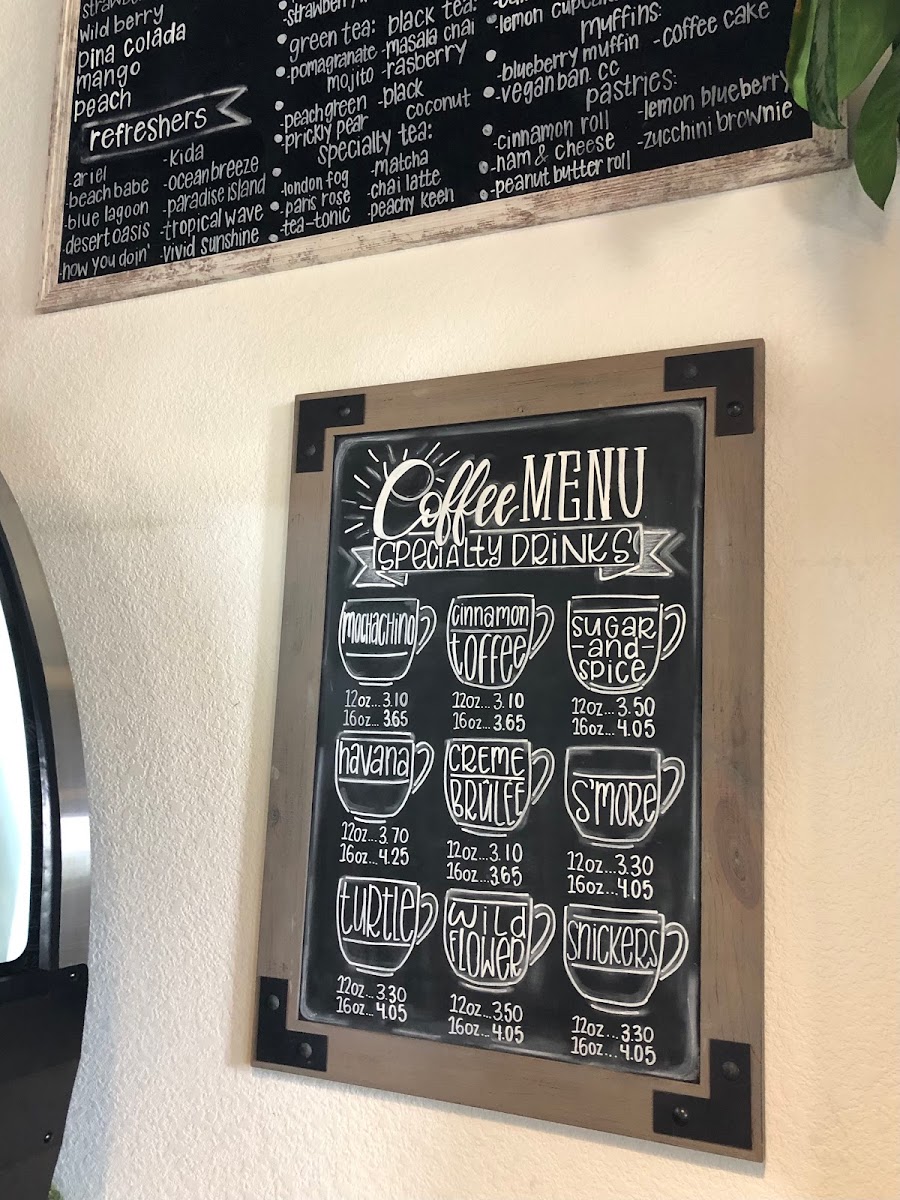 strawb
wild berry
pina colada
mango
peach
refreshers
-ariel
-beach babe
-blue lagoon
-desert oasis
-how you doin'
-Kida
-ocean breeze
-paradise island
-tropical wave
-vivid sunshine
-strawberry
green tea:
-pomagranate
mojito
-peach green
-prickly pear
black tea:
-masala chai
-rasberry
-black
coconut
specialty tea:
-london fog
-paris rose
-tea-tonic
-matcha
-chai latte
-peachy keen
-lemon cupcake
muffins:
-blueberry muffin
-coffee cake
-vegan ban. cc
pastries:
-cinnamon roll
-ham & cheese
-peanut butter roll
-lemon blueberry
-zucchini brownie
Coffee MENU
SPECIALTY DRINKS
mochachino
12oz...3.10
16oz...3.65
cinnamon
toffee
12oz...3.10
16oz...3.65
SUGAR
-and-
spice
12oz...3.50
16oz...4.05
havana
12oz...3.70
16oz...4.25
CREME
BRÛLÉE
12oz...3.10
16oz...3.65
S'MORE
12oz...3.30
16oz...4.05
turtle
12oz...3.30
16oz...4.05
wild
FLOWER
12oz...3.50
16oz...4.05
SNICKERS
12oz...3.30
16oz...4.05